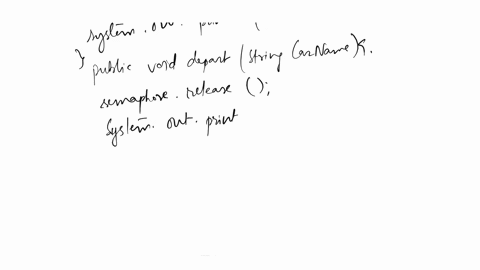 system . out .
}
public void depart (String CarName){.
semaphore. release ();
System. out. print